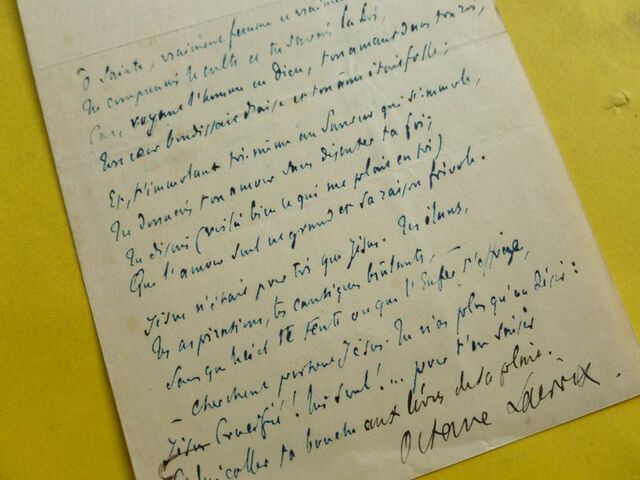 Ô Sainte, vraiment femme et vraiment
Tu comprenais le culte et tu savais la Loi,
Car, voyant l'homme en Dieu, ton amant dans ton roi,
Ton cœur bondissait d'aise et ton âme était folle ;
Et, t'immolant toi-même au Sauveur qui s'immole,
Tu donnais ton amour sans disputer ta foi ;
Tu disais (voilà bien ce qui me plaît en toi)
Que l'amour seul est grand et sa raison frivole.
Jésus n'était pour toi que Jésus. Tes élans,
Tes aspirations, tes cantiques brûlants,
Sans que le ciel te tente ou que l'Enfer t'afflige,
– Cherchent partout Jésus. Tu n'as plus qu'un désir :
Jésus Crucifié ! lui seul ! ... pour t'en saisir
coller ta bouche aux lèvres de sa plaie.
Octave Lacroix.